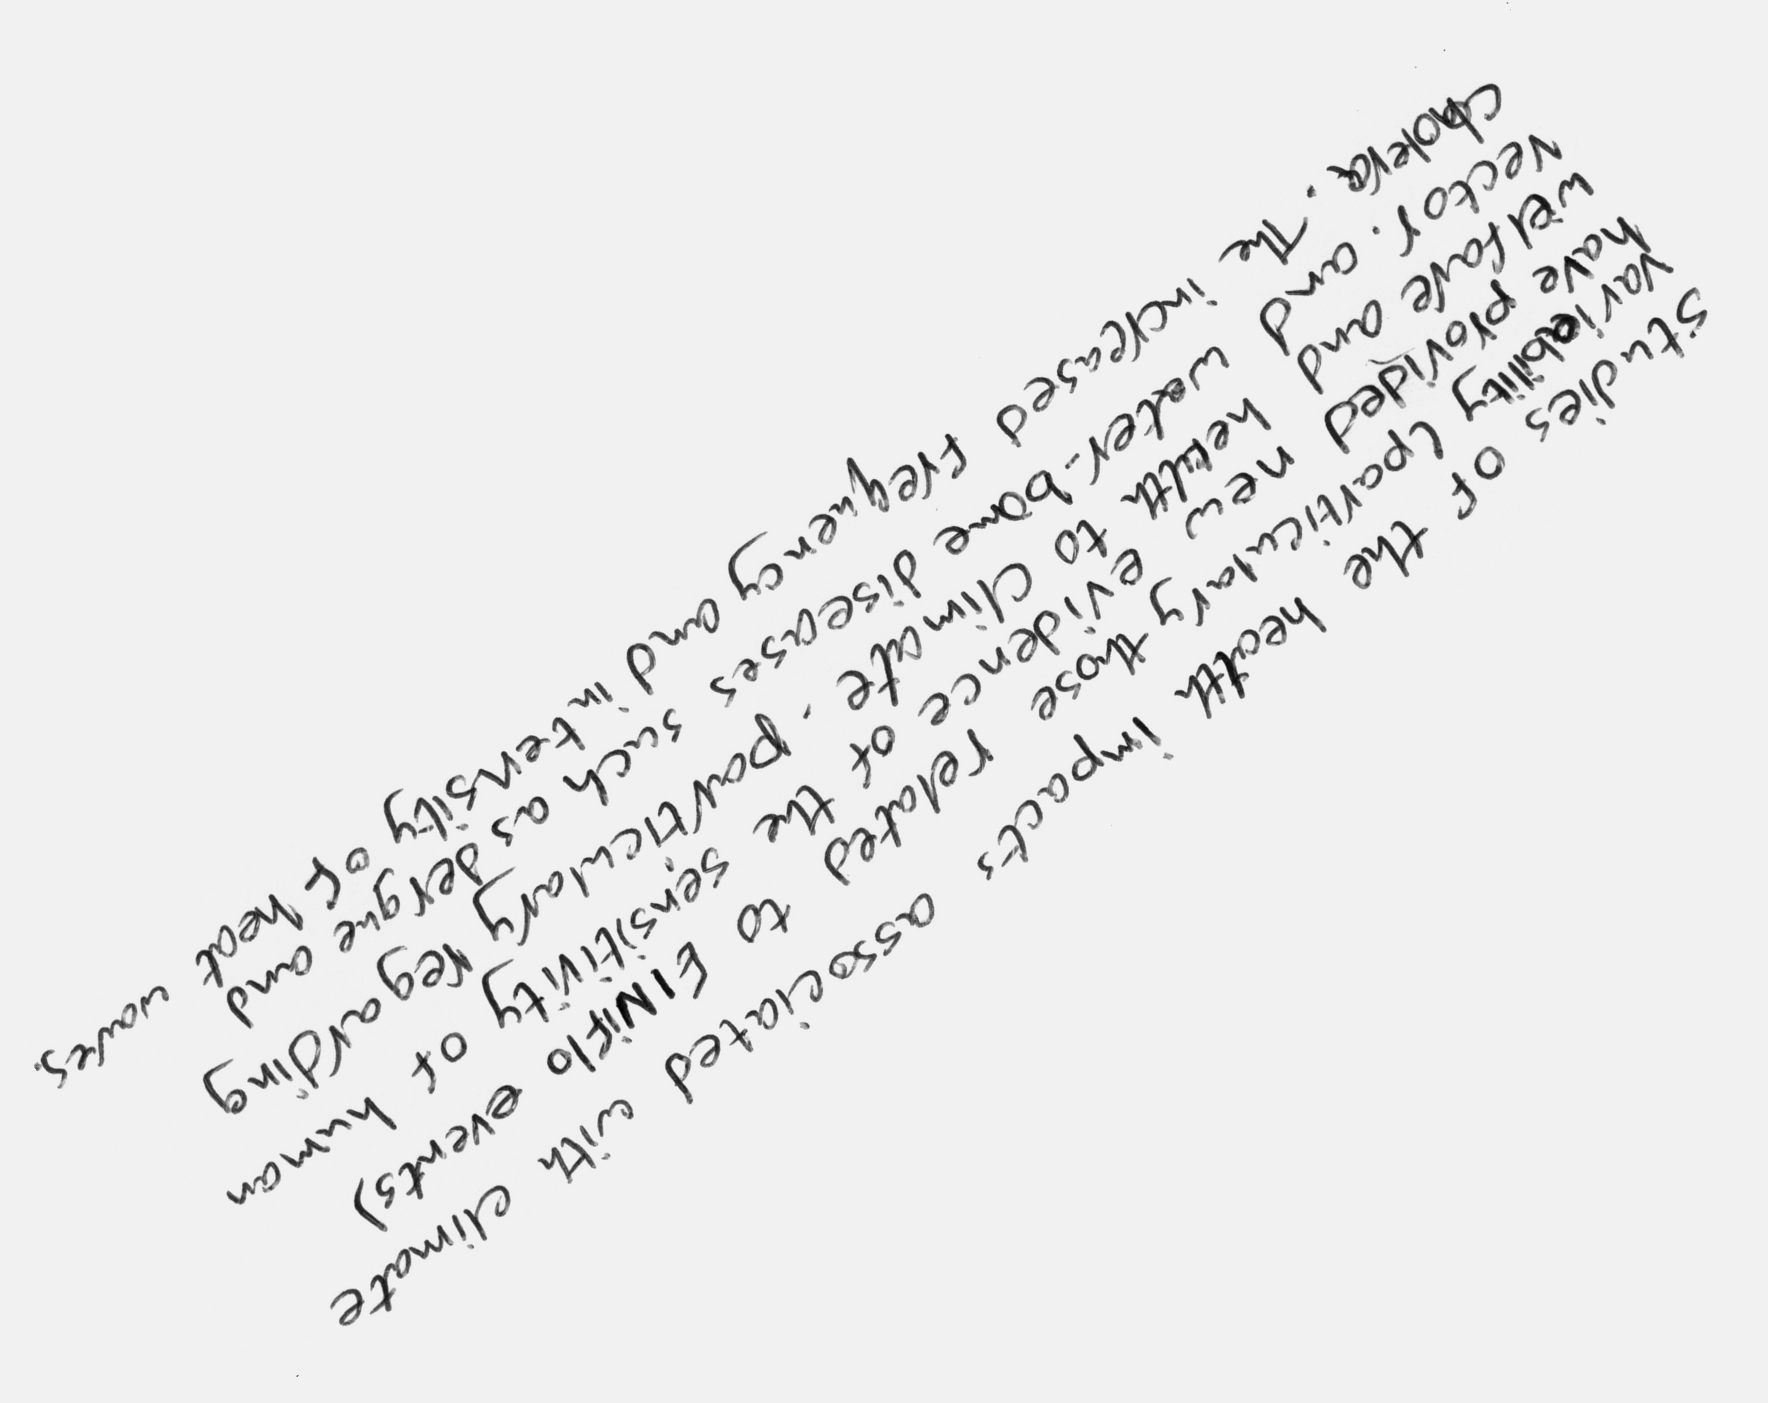 studies of the health impacts associated with climate
variability (particulary those related to ElNiflo events)
have provided new evidence of the sensitivity of human
welfare and health to climate, particulary regarding
vector. and water-borne diseases such as dergue and
cholera. The increased frequency and intensity of heat waves.